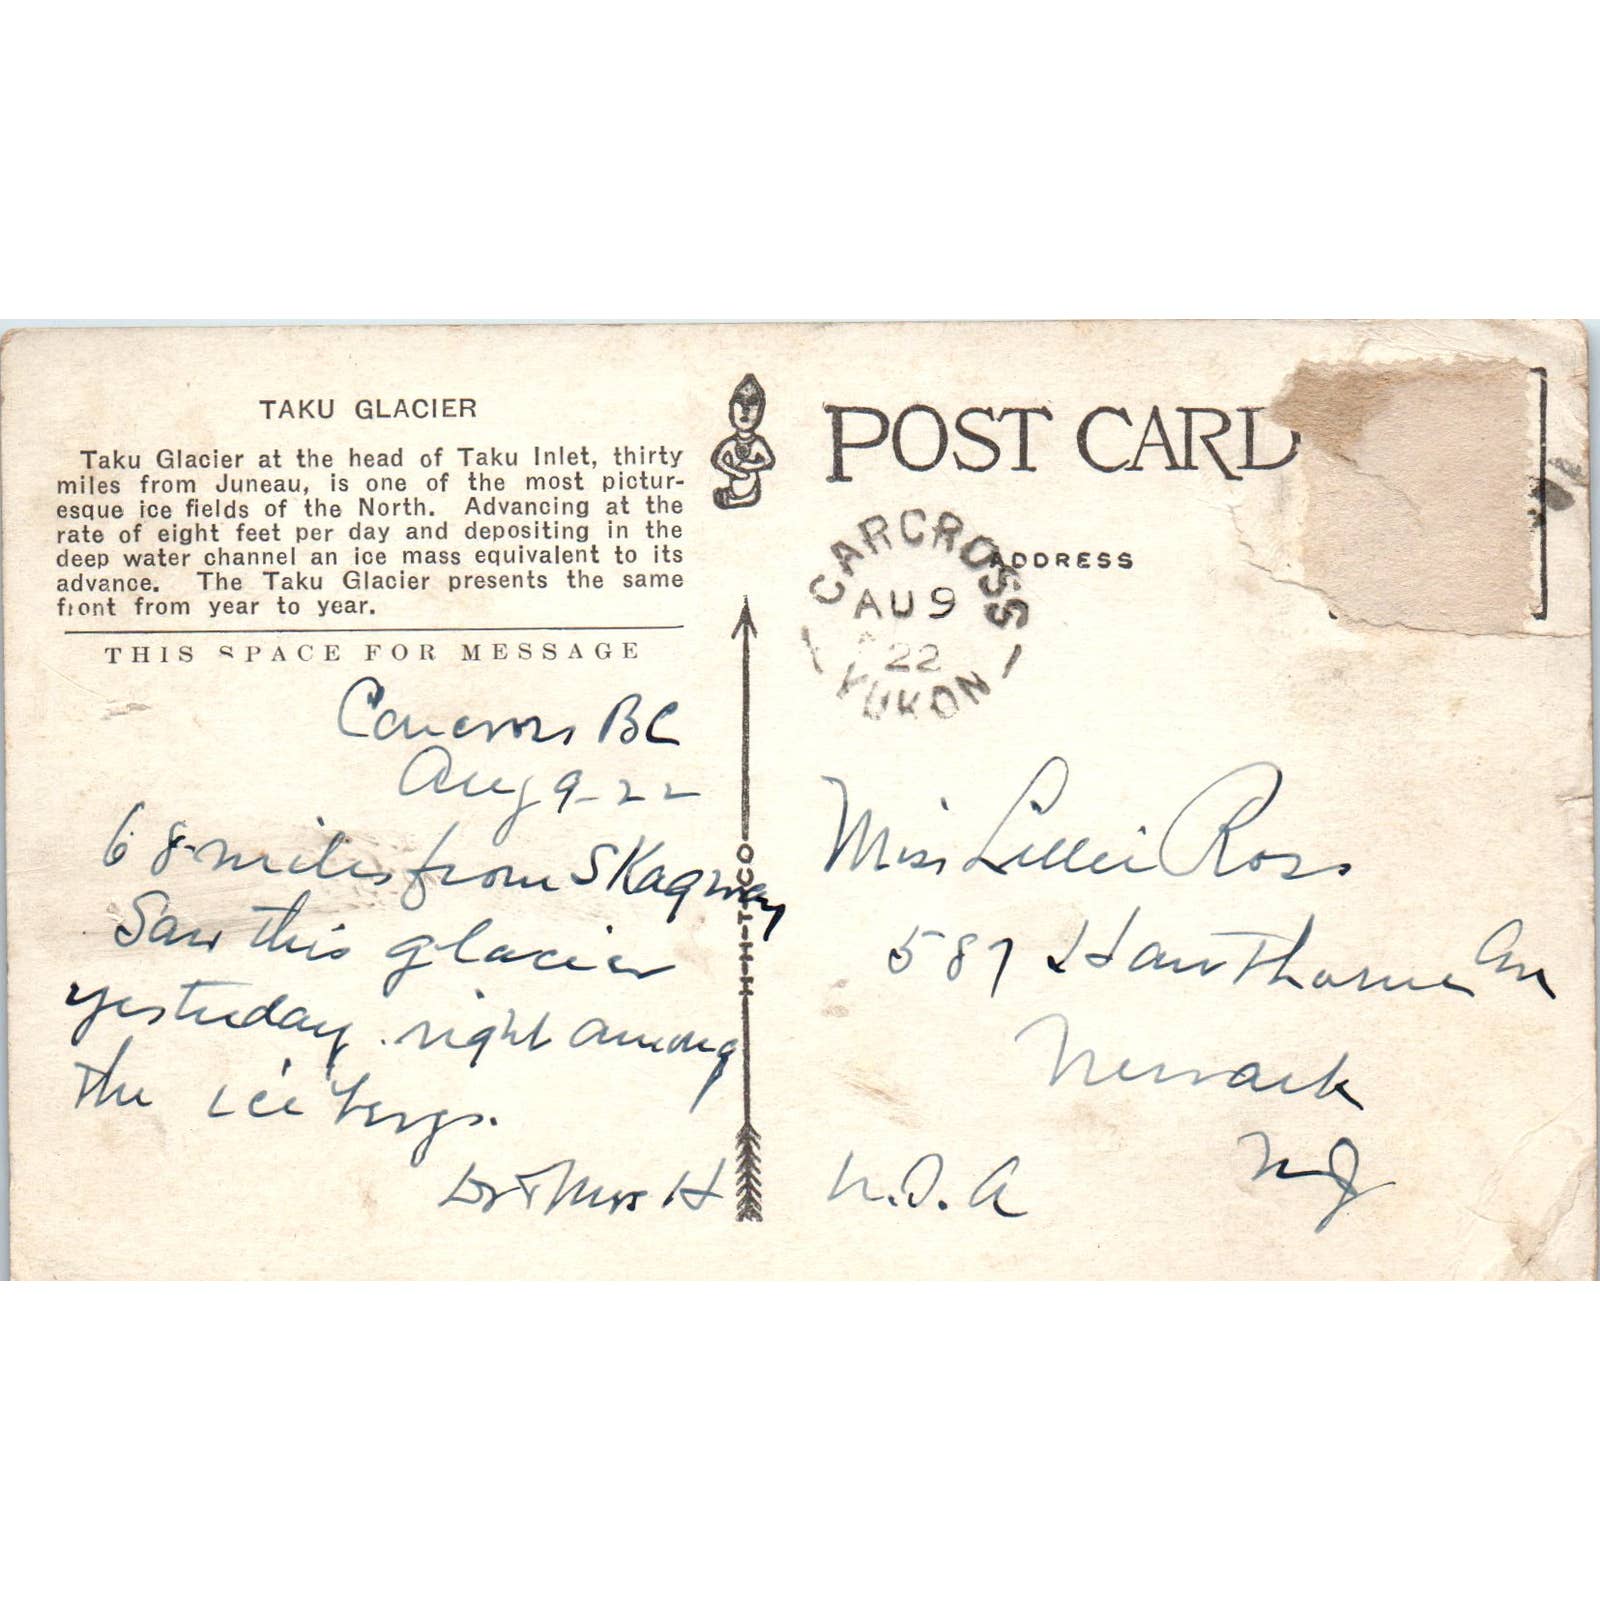 TAKU GLACIER
Taku Glacier at the head of Taku Inlet, thirty
miles from Juneau, is one of the most pictur-
esque ice fields of the North. Advancing at the
rate of eight feet per day and depositing in the
deep water channel an ice mass equivalent to its
advance. The Taku Glacier presents the same
front from year to year.
THIS SPACE FOR MESSAGE
Carcross BC
Aug 9-22
68 miles from SKagway
Saw this glacier
yesterday. right among
the ice bergs.
Dr & Mrs H
H-H-T-CO
POST CARD
ADDRESS
CARCROSS
AU 9
22
YUKON
Miss Lillie Ross
587 Hawthorne Av
Newark
NJ
U.S.A